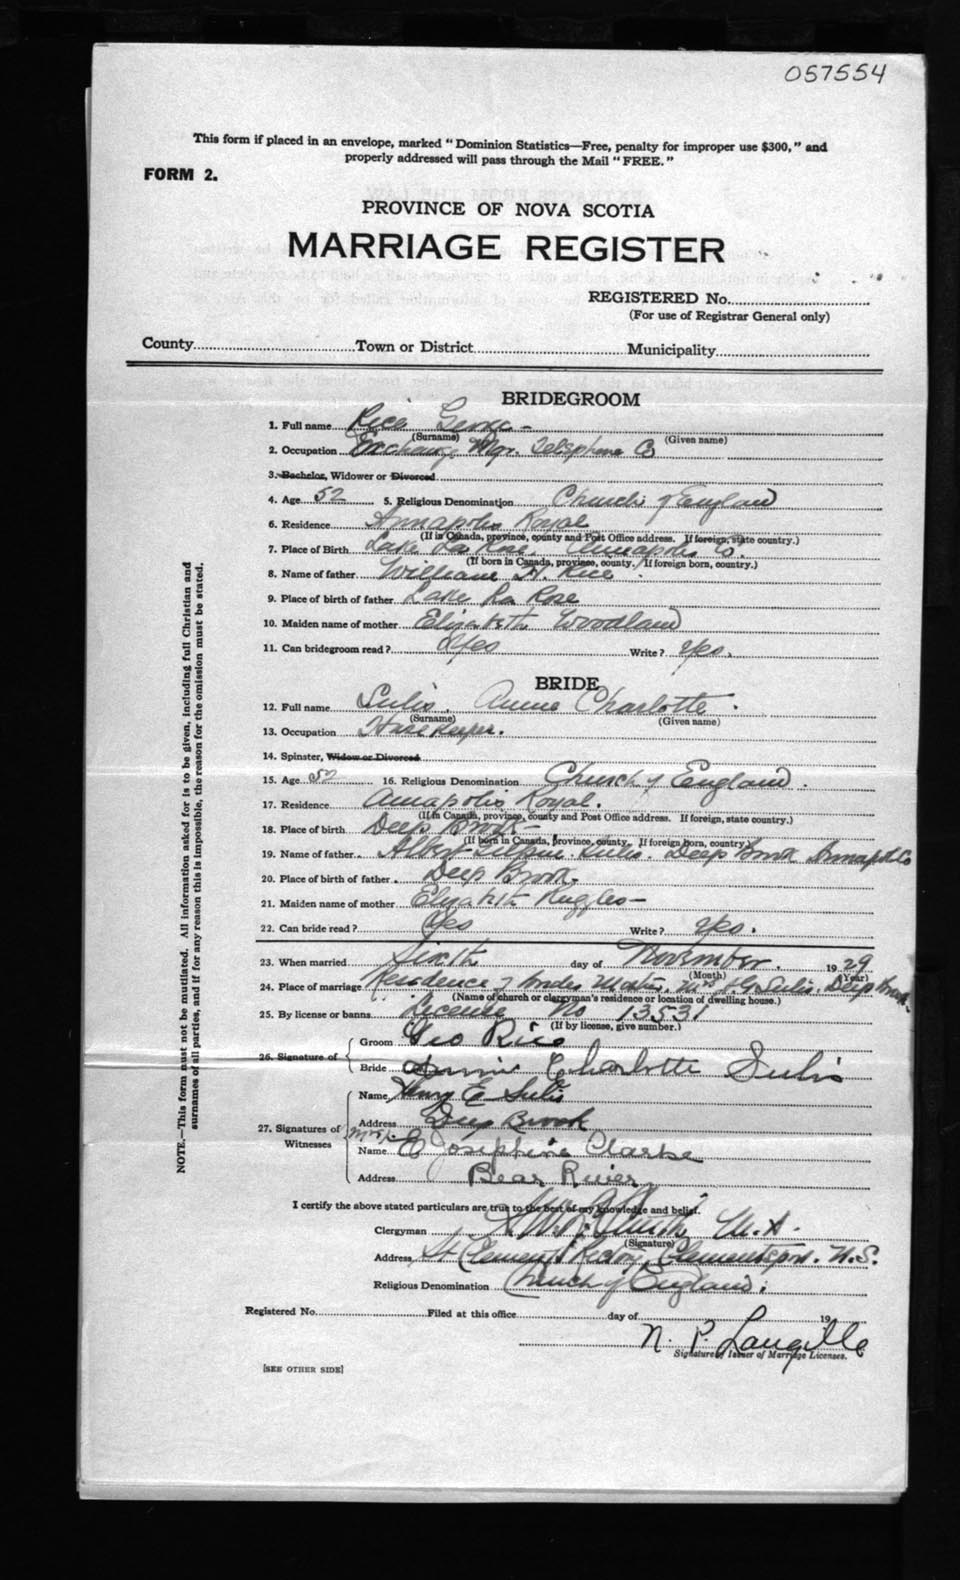 057554
This form if placed in an envelope, marked "Dominion Statistics—Free, penalty for improper use $300," and
properly addressed will pass through the Mail "FREE."
FORM 2.
PROVINCE OF NOVA SCOTIA
MARRIAGE REGISTER
REGISTERED No.
(For use of Registrar General only)
County Town or District Municipality
BRIDEGROOM
1. Full name Rice George
(Surname) (Given name)
2. Occupation Exchange Mgr. Telephone Co
3. Bachelor, Widower or Divorced
4. Age 52 5. Religious Denomination Church of England
6. Residence Annapolis Royal
(If in Canada, province, county and Post Office address. If foreign, state country.)
7. Place of Birth Lake La Rose. Annapolis Co.
(If born in Canada, province, county. If foreign born, country.)
8. Name of father William H. Rice
9. Place of birth of father Lake La Rose
10. Maiden name of mother Elizabeth Woodland
11. Can bridegroom read? Yes Write? Yes.
BRIDE
12. Full name Sulis, Annie Charlotte
(Surname) (Given name)
13. Occupation House Keeper.
14. Spinster, Widow or Divorced
15. Age 52 16. Religious Denomination Church of England.
17. Residence Annapolis Royal.
(If in Canada, province, county and Post Office address. If foreign, state country.)
18. Place of birth Deep Brook
(If born in Canada, province, county. If foreign born, country)
19. Name of father Albert Sulis. Deep Brook Annapolis Co
20. Place of birth of father Deep Brook.
21. Maiden name of mother Elizabeth Ruggles
22. Can bride read? Yes Write? Yes.
23. When married Sixth day of November. 1929
(Month) (Year)
24. Place of marriage Residence of brides Mother. Mrs Sulis. Deep Brook.
(Name of church or clergyman's residence or location of dwelling house.)
25. By license or banns License No 13531
(If by license, give number.)
26. Signature of Groom Geo Rice
Bride Annie Charlotte Sulis
27. Signatures of Witnesses
Name Harry E Sulis
Address Deep Brook
Name Mrs E Josephine Clarke
Address Bear River
I certify the above stated particulars are true to the best of my knowledge and belief.
Clergyman M.A.
(Signature)
Address St Clements Rectory, Clementsport. N.S.
Religious Denomination Church of England.
Registered No. Filed at this office day of 19
N. P. Langille
Signature of Issuer of Marriage Licenses.
[SEE OTHER SIDE]
NOTE.—This form must not be mutilated. All information asked for is to be given, including full Christian and
surnames of all parties, and if for any reason this is impossible, the reason for the omission must be stated.